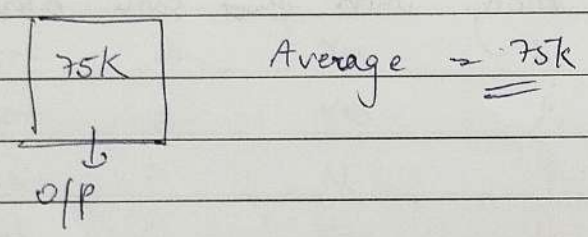 75K Average = 75k
O/P